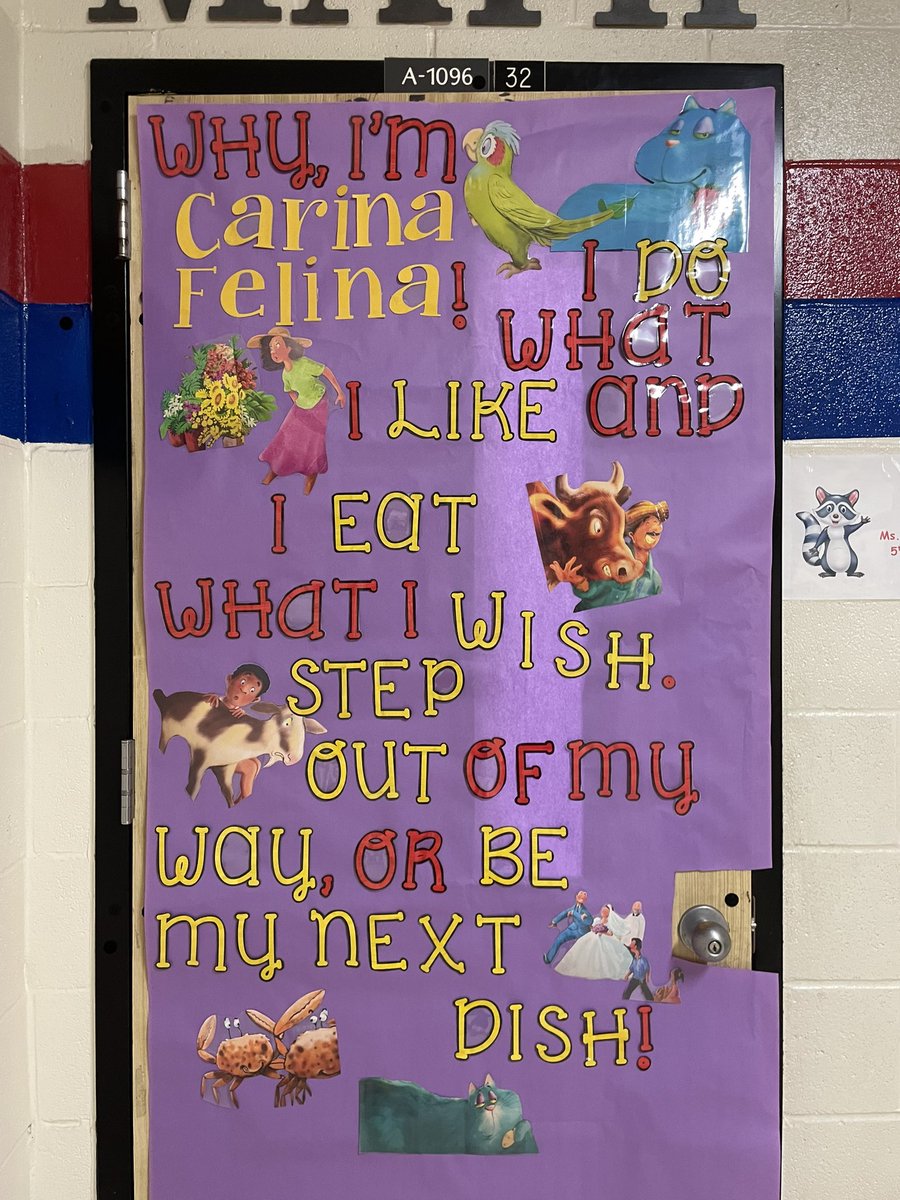 A-1096 32
WHY, I'm
Carina
Felina!
I DO
WHaT
I LIKE anD
I EaT
WHaT I WISH.
STEP
OUT OF my
Way, OR BE
my nEXT
DISH!
Ms.